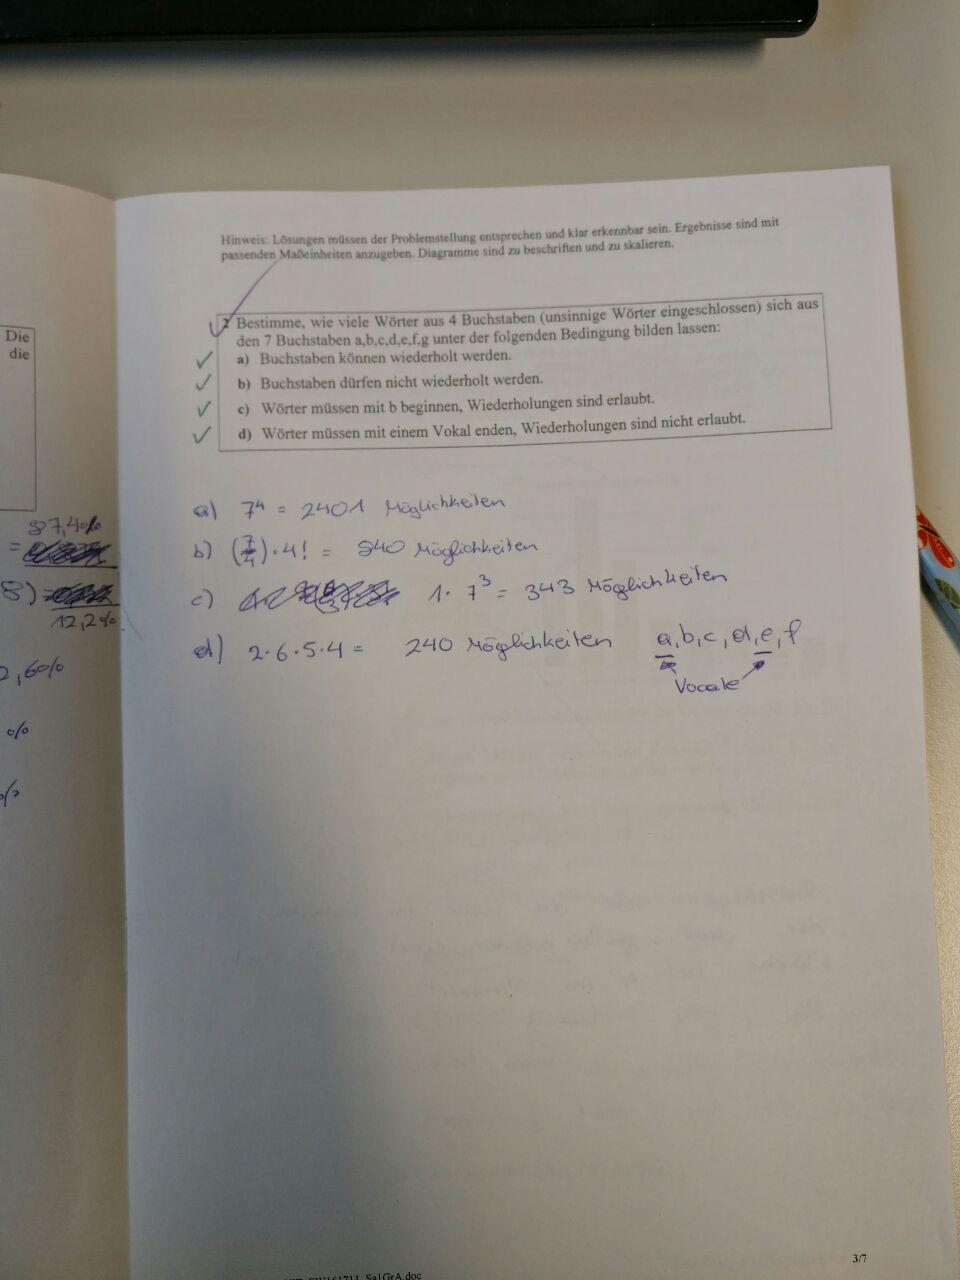 Die
die
87,4%
=
8) =
12,2%
2,60%
%
%
Hinweis: Lösungen müssen der Problemstellung entsprechen und klar erkennbar sein. Ergebnisse sind mit
passenden Maßeinheiten anzugeben. Diagramme sind zu beschriften und zu skalieren.
2 Bestimme, wie viele Wörter aus 4 Buchstaben (unsinnige Wörter eingeschlossen) sich aus
den 7 Buchstaben a,b,c,d,e,f,g unter der folgenden Bedingung bilden lassen:
a) Buchstaben können wiederholt werden.
b) Buchstaben dürfen nicht wiederholt werden.
c) Wörter müssen mit b beginnen, Wiederholungen sind erlaubt.
d) Wörter müssen mit einem Vokal enden, Wiederholungen sind nicht erlaubt.
a) 7⁴ = 2401 Möglichkeiten
b) (7/4) · 4! = 840 Möglichkeiten
c) 1 · 7³ = 343 Möglichkeiten
d) 2·6·5·4 = 240 Möglichkeiten a,b,c,d,e,f
Vocale
3/7
Sa1GrA.doc